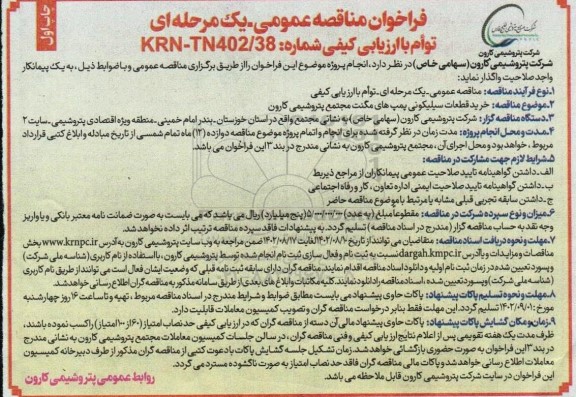 چاپ اول
فراخوان مناقصه عمومی-یک مرحله ای
توأم با ارزیابی کیفی شماره: KRN-TN402/38
شرکت پتروشیمی کارون
شرکت پتروشیمی کارون (سهامی خاص) در نظر دارد، انجام پروژه موضوع این فراخوان را از طریق برگزاری مناقصه عمومی و با ضوابط ذیل، به یک پیمانکار
واجد صلاحیت واگذار نماید:
۱.نوع فرآیند مناقصه: مناقصه عمومی-یک مرحله ای- توأم با ارزیابی کیفی
۲.موضوع مناقصه: خرید قطعات سیلیکونی پمپ های مگنت مجتمع پتروشیمی کارون
۳.دستگاه مناقصه گزار: شرکت پتروشیمی کارون (سهامی خاص) به نشانی مجتمع واقع در استان خوزستان-بندر امام خمینی-منطقه ویژه اقتصادی پتروشیمی-سایت ۲
۴.مدت و محل انجام پروژه: مدت زمان در نظر گرفته شده برای انجام و اتمام پروژه موضوع مناقصه دوازده (۱۲) ماه تمام شمسی از تاریخ مبادله و ابلاغ کتبی قرارداد
مربوط، خواهد بود و محل اجرای آن، مجتمع پتروشیمی کارون به نشانی مندرج در بند ۳ این فراخوان می باشد.
۵.شرایط لازم جهت مشارکت در مناقصه:
الف.داشتن گواهینامه تایید صلاحیت عمومی پیمانکاران از مراجع ذیربط
ب.داشتن گواهینامه تایید صلاحیت ایمنی اداره تعاون، کار و رفاه اجتماعی
ج.داشتن سابقه تجربی قبلی مشابه یا مرتبط با موضوع مناقصه حاضر
۶.میزان و نوع سپرده شرکت در مناقصه: مقطوعاً مبلغ (به عدد) ۵/۰۰۰/۰۰۰/۰۰۰ (پنج میلیارد) ریال می باشد که می بایست به صورت ضمانت نامه معتبر بانکی و یا واریز
وجه نقد به حساب مناقصه گزار (مندرج در اسناد مناقصه) تسلیم گردد. به پیشنهادات فاقد سپرده مناقصه ترتیب اثر داده نخواهد شد.
۷.مهلت و نحوه دریافت اسناد مناقصه: متقاضیان می توانند از تاریخ ۱۴۰۲/۰۸/۱۰ لغایت ۱۴۰۲/۰۸/۱۷ ضمن مراجعه به وب سایت پتروشیمی کارون به آدرس www.krnpc.ir بخش
مناقصات و مزایدات و یا آدرس dargah.kmpc.ir نسبت به ثبت نام و فعال سازی ثبت نام انجام شده توسط پتروشیمی کارون، با استفاده از نام کاربری (شناسه ملی شرکت)
و پسورد تعیین شده در زمان ثبت نام اولیه و دانلود اسناد مناقصه اقدام نمایند. مناقصه گران دارای سابقه ثبت نامه قبلی که وضعیت ایشان فعال است می توانند از طریق نام کاربری
(شناسه ملی شرکت) و پسورد تعیین شده، اسناد مناقصه را دانلود نمایند. کلیه مکاتبات و ابلاغ های بعدی از طریق سامانه مذکور به مناقصه گران اطلاع رسانی خواهد شد.
۸.مهلت و نحوه تسلیم پاکات پیشنهاد: پاکات حاوی پیشنهاد می بایست مطابق ضوابط و شرایط مندرج در اسناد مناقصه مربوط، تهیه و تا ساعت ۱۶ روز چهارشنبه
مورخ ۱۴۰۲/۰۹/۰۱ تسلیم گردد. این مهلت فقط بنابر درخواست مناقصه گران و تصویب کمیسیون معاملات قابلیت دارد.
۹.زمان و مکان گشایش پاکات پیشنهاد: پاکات حاوی پیشنهاد مالی آن دسته از مناقصه گران که در ارزیابی کیفی حد نصاب امتیاز (۶۰ از ۱۰۰ امتیاز) را کسب نموده باشند،
ظرف مدت یک هفته تقویمی پس از اعلام نتایج ارزیابی کیفی و فنی مناقصه گران، در سالن جلسات کمیسیون معاملات مجتمع پتروشیمی کارون به نشانی مندرج
در بند ۳ این فراخوان به صورت حضوری بازگشایی خواهد شد. زمان تشکیل جلسه گشایش پاکات با دعوت کتبی از مناقصه گران مذکور از طرف دبیرخانه کمیسیون
معاملات اطلاع رسانی خواهد شد و پاکات مالی مناقصه گران فاقد حد نصاب امتیاز به صورت ناگشوده مسترد می گردد.
این فراخوان در سایت شرکت پتروشیمی کارون قابل ملاحظه می باشد.
روابط عمومی پتروشیمی کارون